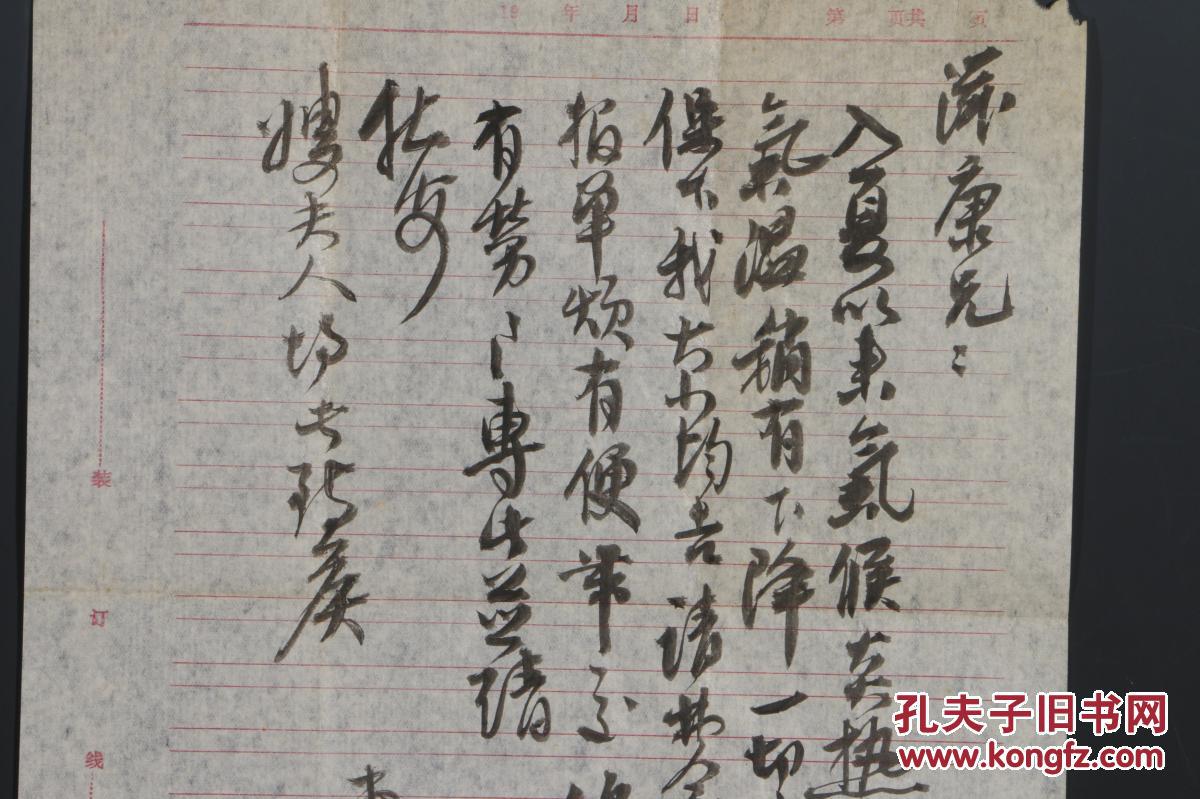 19 年 月 日 第 页共 页
康兄:
入夏以来氣候炎热
氣温稍有下降一切
保下我大小均吉请
报单烦有便带交
有劳 专此并请
嫂夫人均此致候
装
订
线
孔夫子旧书网
www.kongfz.com